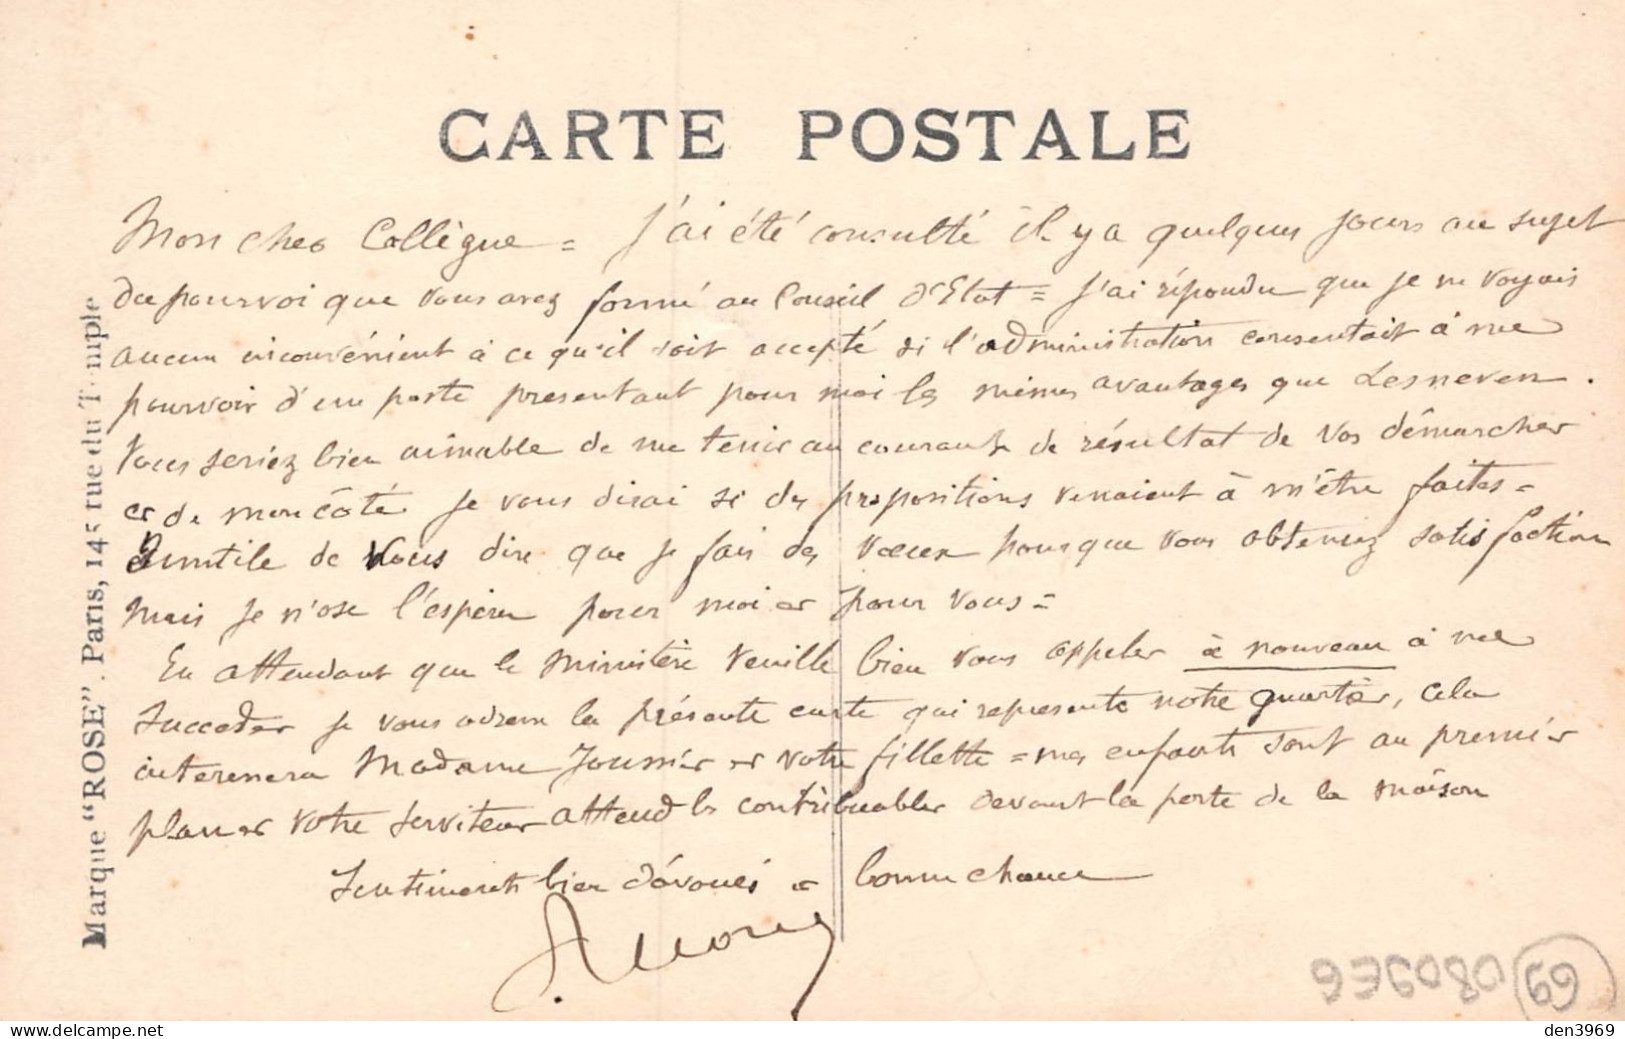 CARTE POSTALE
Mon cher Collègue = J'ai été consulté il y a quelques jours au sujet
du pourvoi que vous avez formé au Conseil d'Etat = J'ai répondu que je ne voyais
aucun inconvénient à ce qu'il soit accepté si l'administration consentait à me
pourvoir d'un poste présentant pour moi les mêmes avantages que Lesneven.
Vous seriez bien aimable de me tenir au courant de résultat de vos démarches
et de mon côté je vous dirai si des propositions venaient à m'être faites =
Inutile de vous dire que je fais des vœux pour que vous obteniez satisfaction
mais je n'ose l'espérer pour moi et pour vous =
En attendant que le Ministère veuille bien vous appeler à nouveau à me
succéder je vous adresse la présente carte qui représente notre quartier, cela
intéressera Madame et votre fillette = mes enfants sont au premier
plan et votre serviteur attend les contribuables devant la porte de la maison
Sentiments bien dévoués et bonne chance
Marque "ROSE". Paris, 145 rue du Temple
69
den3969